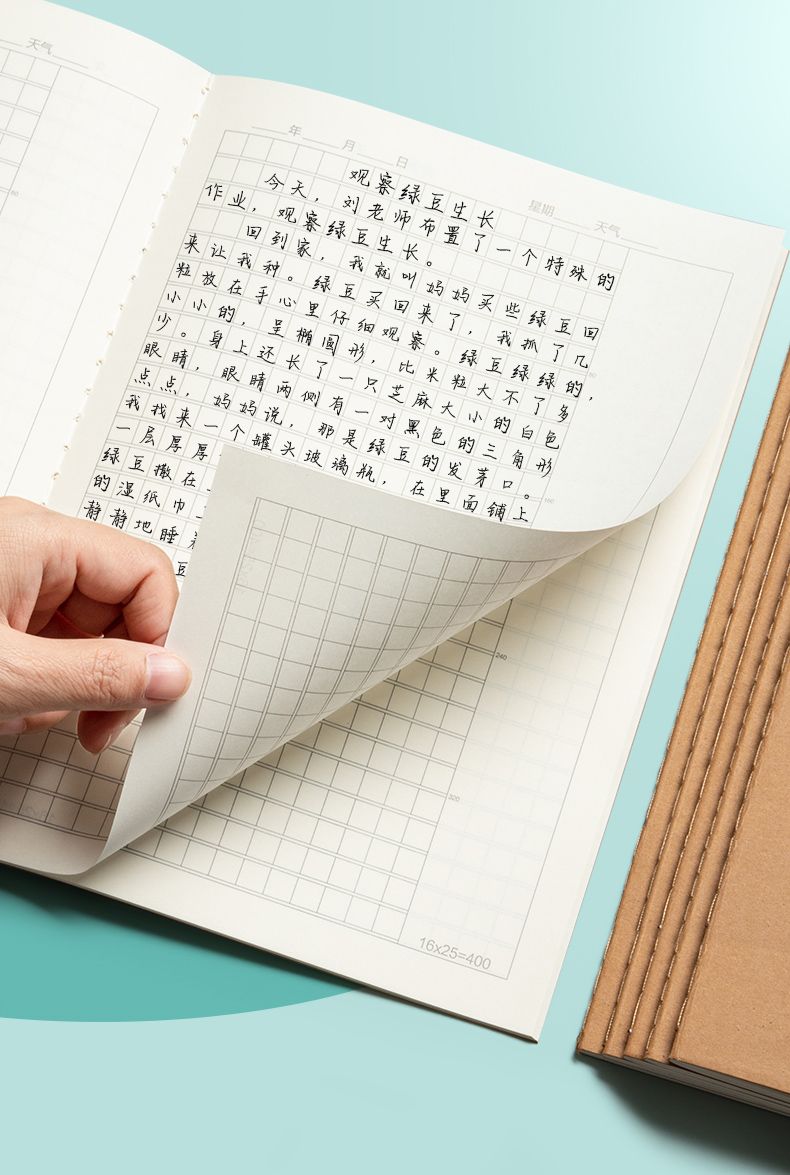 天气
年 月 日 星期 天气
观察绿豆生长
今天，刘老师布置了一个特殊的
作业，观察绿豆生长。
回到家，我就叫妈妈买些绿豆回
来让我种。绿豆买回来了，我抓了几
粒放在手心里仔细观察。绿豆绿绿的，
小小的，呈椭圆形，比米粒大不了多
少。身上还长了一只芝麻大小的白色
眼睛，眼睛两侧有一对黑色的三角形
点点，妈妈说，那是绿豆的发芽口。
我找来一个罐头玻璃瓶，在里面铺上
一层厚厚
绿豆撒在
的湿纸巾
静静地睡
豆
240
320
16x25=400